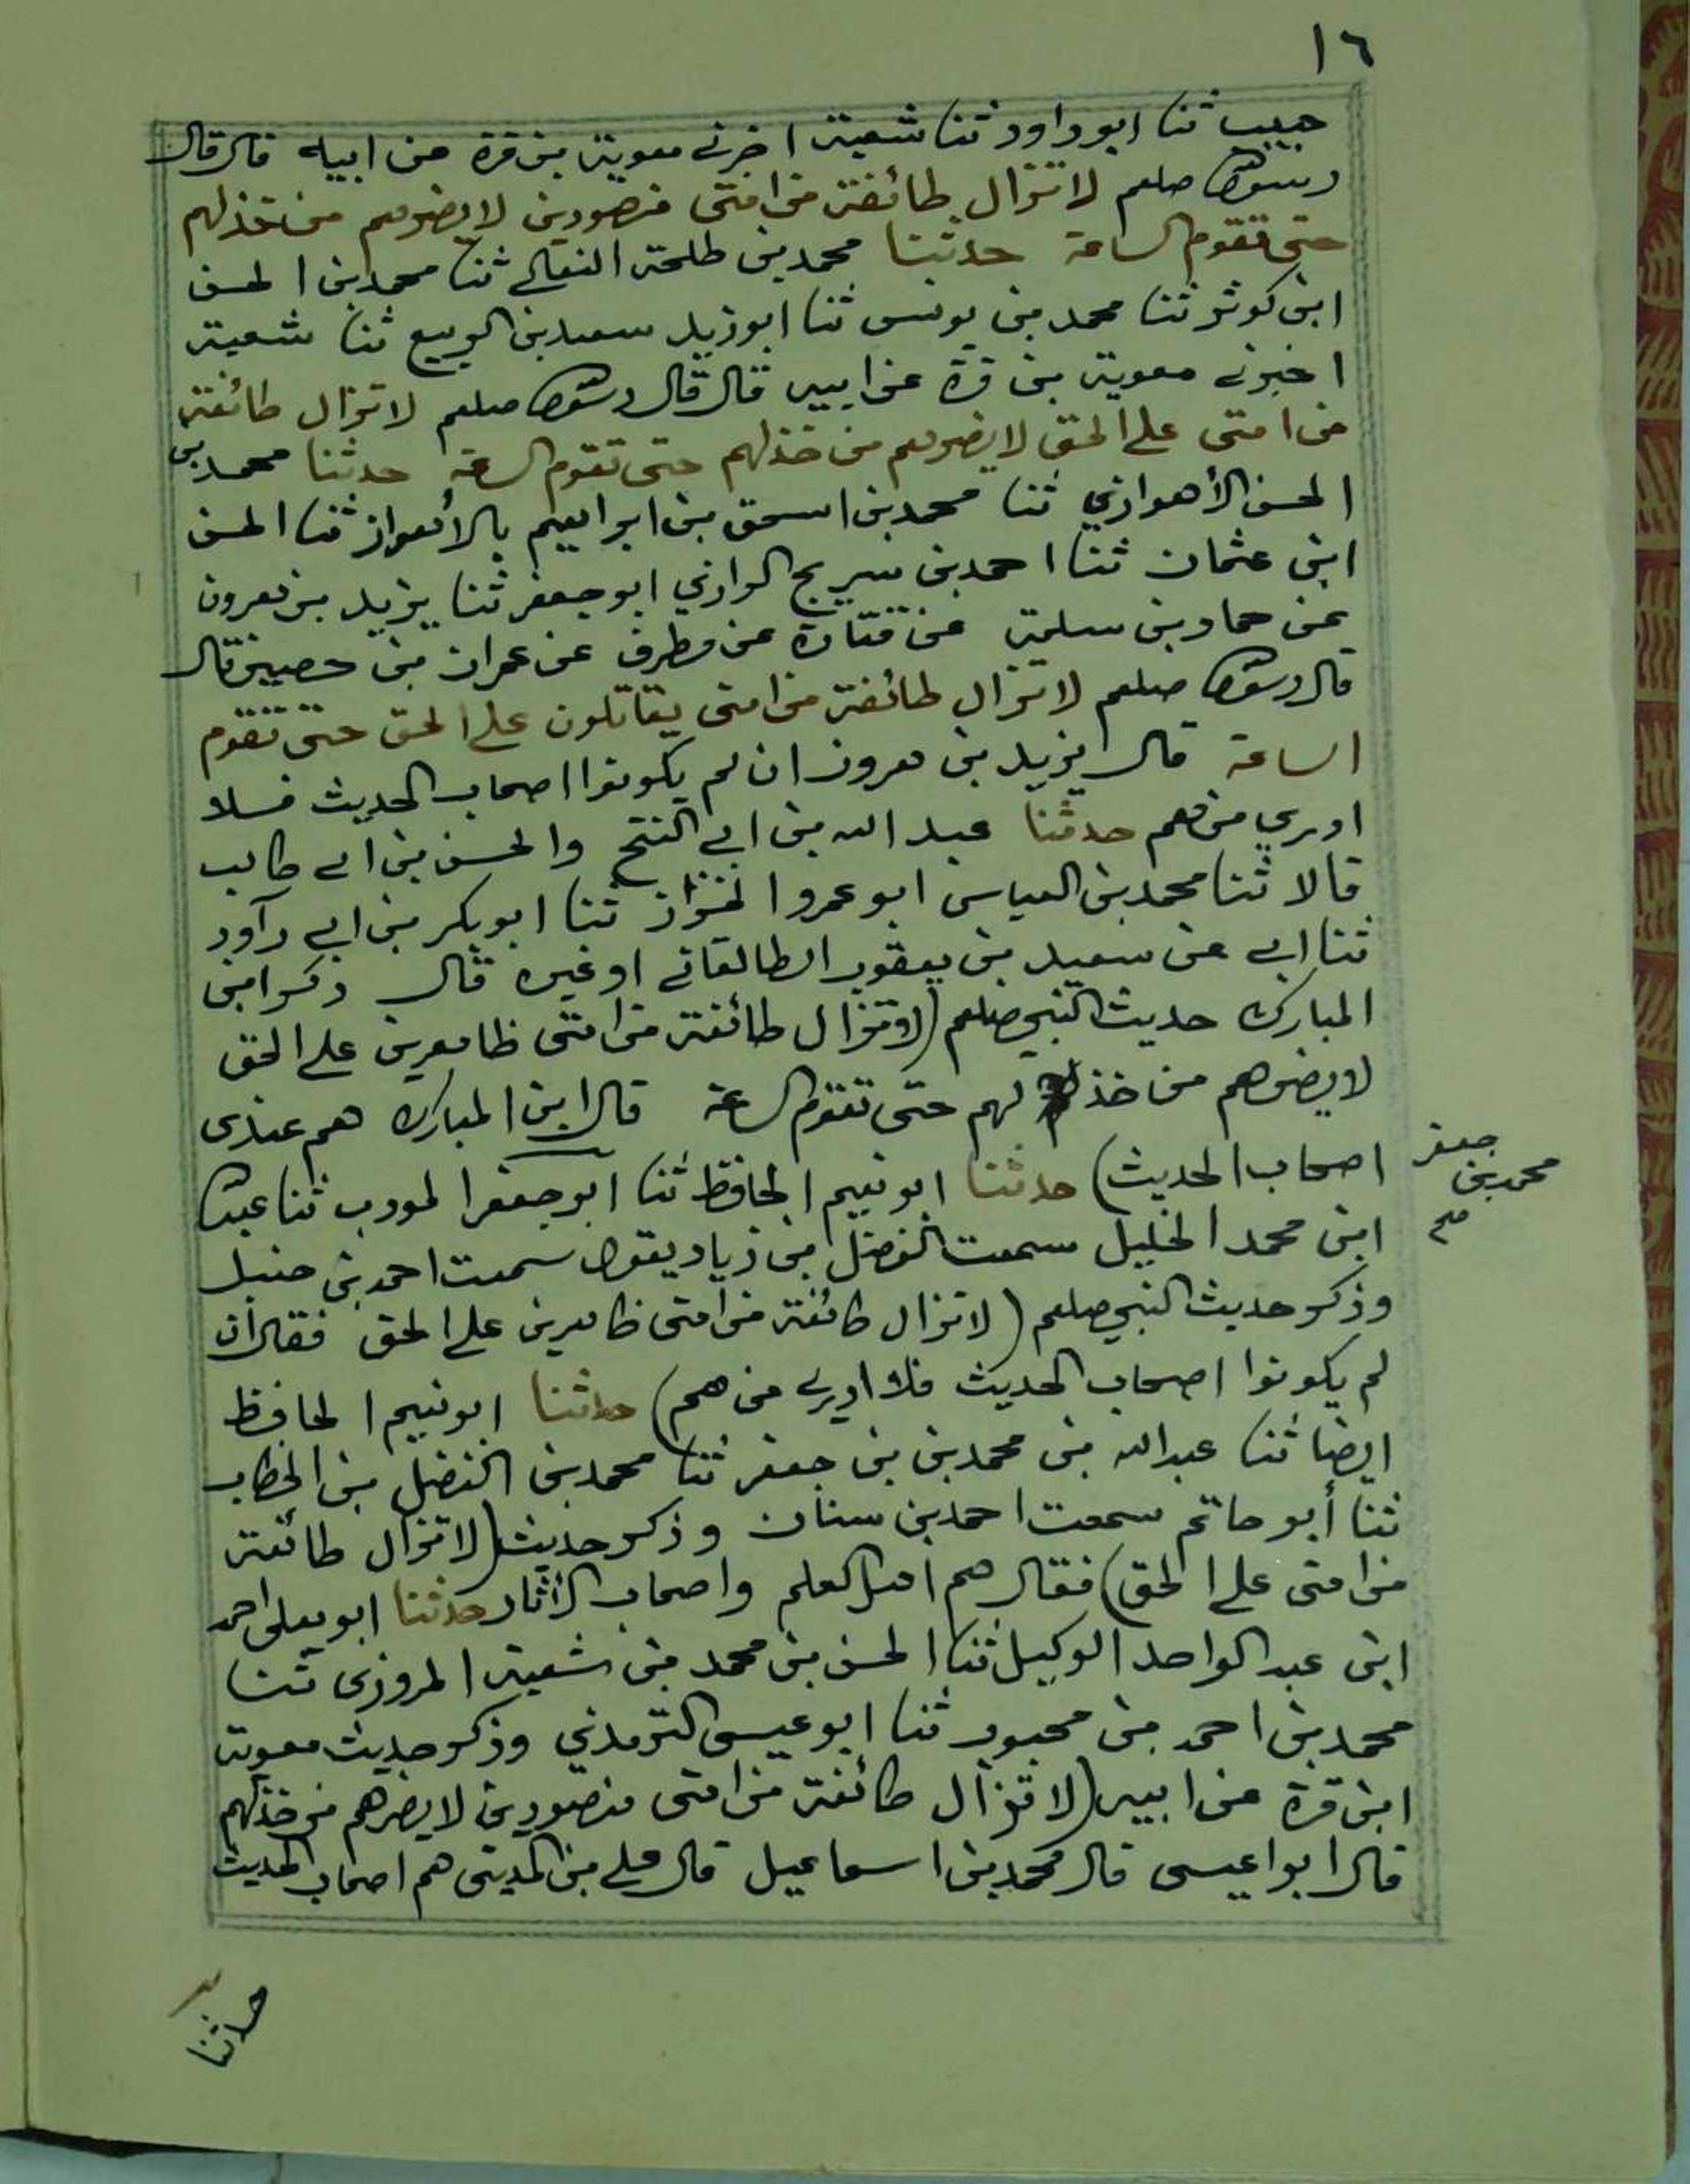 ١٦
حبيب ثنا ابو داود ثنا شعبة اخبرني معوية بن قرة عن ابيه قال قال
رسول الله صلعم لا تزال طائفة من امتى منصورين لا يضرهم من خذلهم
حتى تقوم الساعة حدثنا محمد بن طلحة النعالي ثنا محمد بن الحسن
ابن كوثر ثنا محمد بن يونس ثنا ابو زيد سعيد بن الربيع ثنا شعبة
اخبرني معوية بن قرة عن ابيه قال قال رسول الله صلعم لا تزال طائفة
من امتى على الحق لا يضرهم من خذلهم حتى تقوم الساعة حدثنا محمد بن
الحسن الأهوازي ثنا محمد بن اسحق بن ابراهيم بالأهواز ثنا الحسن
ابن عثمان ثنا احمد بن سريج الرازي ابو جعفر ثنا يزيد بن هرون
عن حماد بن سلمة عن قتادة عن مطرف عن عمران بن حصين قال
قال رسول الله صلعم لا تزال طائفة من امتى يقاتلون على الحق حتى تقوم
الساعة قال يزيد بن هرون ان لم يكونوا اصحاب الحديث فلا
ادري من هم حدثنا عبد الله بن ابي الفتح والحسن بن ابي طالب
قالا ثنا محمد بن العباس ابو عمرو الخزاز ثنا ابو بكر بن ابي داود
ثنا ابي عن سعيد بن يعقوب الطالقاني او غيره قال ذكر ابن
المبارك حديث النبي صلعم (لا تزال طائفة من امتى ظاهرين على الحق
لا يضرهم من خذ لهم حتى تقوم الساعة قال ابن المبارك هم عندى
اصحاب الحديث) حدثنا ابو نعيم الحافظ ثنا ابو جعفر المودب ثنا عبد الله
جعفر
محمد بن
صح
ابن محمد الخليل سمعت الفضل بن زياد يقول سمعت احمد بن حنبل
وذكر حديث النبي صلعم (لا تزال طائفة من امتى ظاهرين على الحق فقال ان
لم يكونوا اصحاب الحديث فلا ادري من هم) حدثنا ابو نعيم الحافظ
ايضا ثنا عبد الله بن محمد بن بن جعفر ثنا محمد بن الفضل بن الخطاب
ثنا أبو حاتم سمعت احمد بن سنان وذكر حديث (لا تزال طائفة
من امتى على الحق) فقال هم اهل العلم واصحاب الأثار حدثنا ابو يعلى احمد
ابن عبد الواحد الوكيل ثنا الحسن بن محمد بن شعبة المروزى ثنا
محمد بن احمد بن محبوب ثنا ابو عيسى الترمذي وذكر حديث معوية
ابن قرة عن ابيه (لا تزال طائفة من امتى منصورين لا يضرهم من خذلهم
قال ابوا عيسى قال محمد بن اسماعيل قال علي بن المديني هم اصحاب الحديث
حدثنا